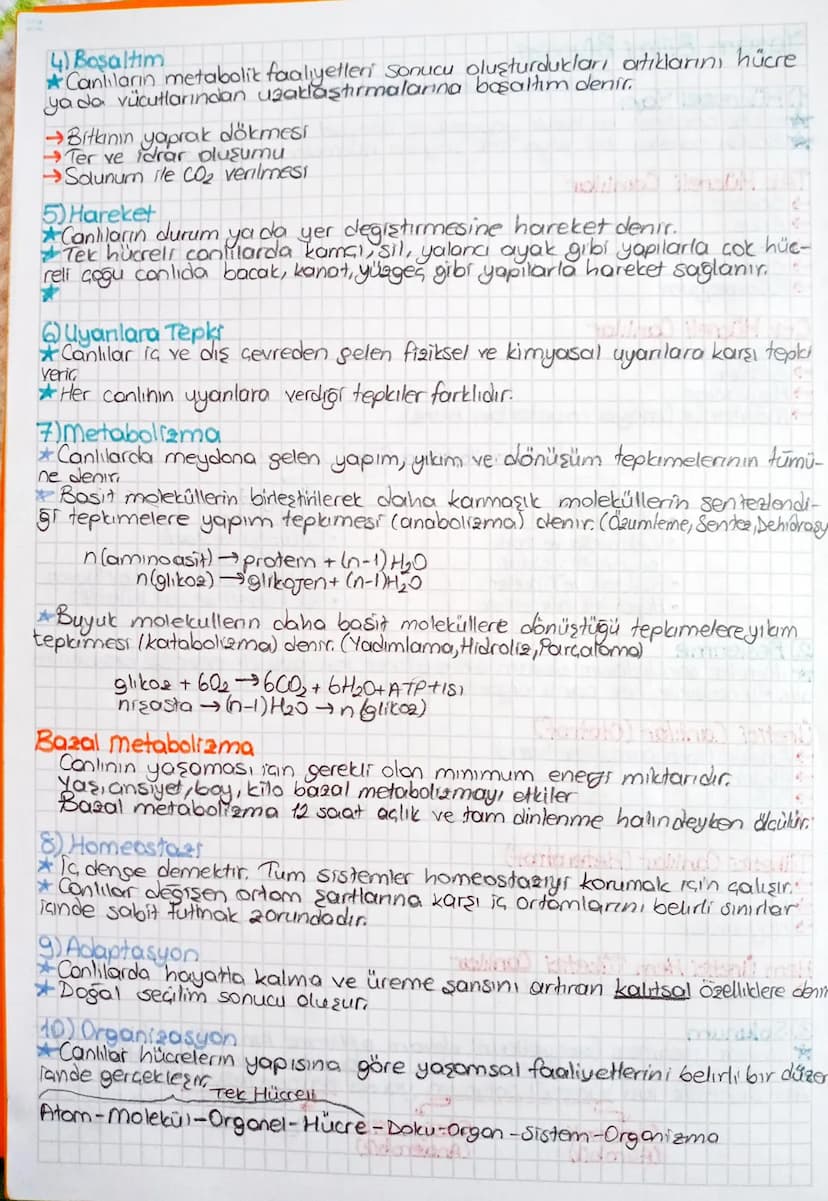 4) Boşaltım
★ Canlıların metabolik faaliyetleri sonucu oluşturdukları artıklarını hücre
ya da vücutlarından uzaklaştırmalarına boşaltım denir.
→ Bitkinin yaprak dökmesi
→ Ter ve idrar oluşumu
→ Solunum ile CO₂ verilmesi
5) Hareket
★ Canlıların durum ya da yer değiştirmesine hareket denir.
★ Tek hücreli canlılarda kamçı, sil, yalancı ayak gibi yapılarla çok hüc-
reli çoğu canlıda bacak, kanat, yüzgeç gibi yapılarla hareket sağlanır.
★
6) Uyarılara Tepki
★ Canlılar iç ve dış çevreden gelen fiziksel ve kimyasal uyarılara karşı tepki
verir.
★ Her canlının uyarılara verdiği tepkiler farklıdır.
7) Metabolizma
★ Canlılarda meydana gelen yapım, yıkım ve dönüşüm tepkimelerinin tümü-
ne denir.
★ Basit moleküllerin birleştirilerek daha karmaşık moleküllerin sentezlendi-
ği tepkimelere yapım tepkimesi (anabolizma) denir. (Özümleme, Sentez, Dehidrasy
n(aminoasit) → protein + (n-1) H₂O
n(glikoz) → glikojen + (n-1) H₂O
★ Buyuk molekullerin daha basit moleküllere dönüştüğü tepkimelere yıkım
tepkimesi (katabolizma) denir. (Yadımlama, Hidroliz, Parçalama)
glikoz + 6O₂ → 6CO₂ + 6H₂O + ATP + ISI
nişasta → (n-1) H₂O → n(glikoz)
Bazal Metabolizma
Canlının yaşaması için gerekli olan minimum enerji miktarıdır.
Yaş, cinsiyet, boy, kilo bazal metabolizmayı etkiler
Bazal metabolizma 12 saat açlık ve tam dinlenme halindeyken ölçülür.
8) Homeostazi
★ İç denge demektir. Tum sistemler homeostaziyi korumak için çalışır.
★ Canlılar değişen ortam şartlarına karşı iç ortamlarını belirli sınırlar
içinde sabit tutmak zorundadır.
9) Adaptasyon
★ Canlılarda hayatta kalma ve üreme şansını artıran kalıtsal özelliklere denir
★ Doğal seçilim sonucu oluşur.
10) Organizasyon
★ Canlılar hücrelerin yapısına göre yaşamsal faaliyetlerini belirli bir düzen
içinde gerçekleşir.
Tek Hücreli
Atom - Molekül - Organel - Hücre - Doku - Organ - Sistem - Organizma